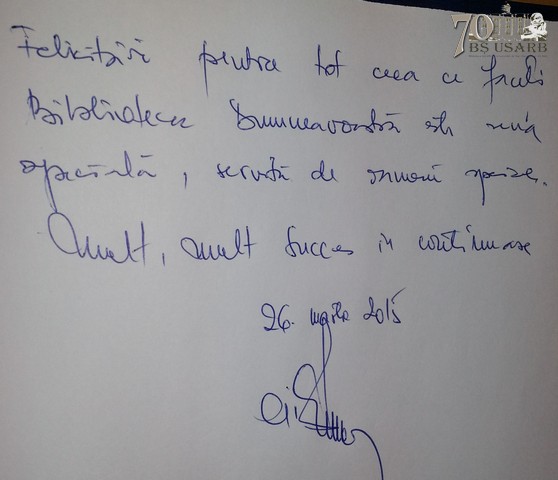 70
BS USARB
Felicitări pentru tot ceea ce faceți
Biblioteca Dumneavoastră este una
specială, servită de oameni speciali.
Mult, mult succes în continuare
26. martie 2015